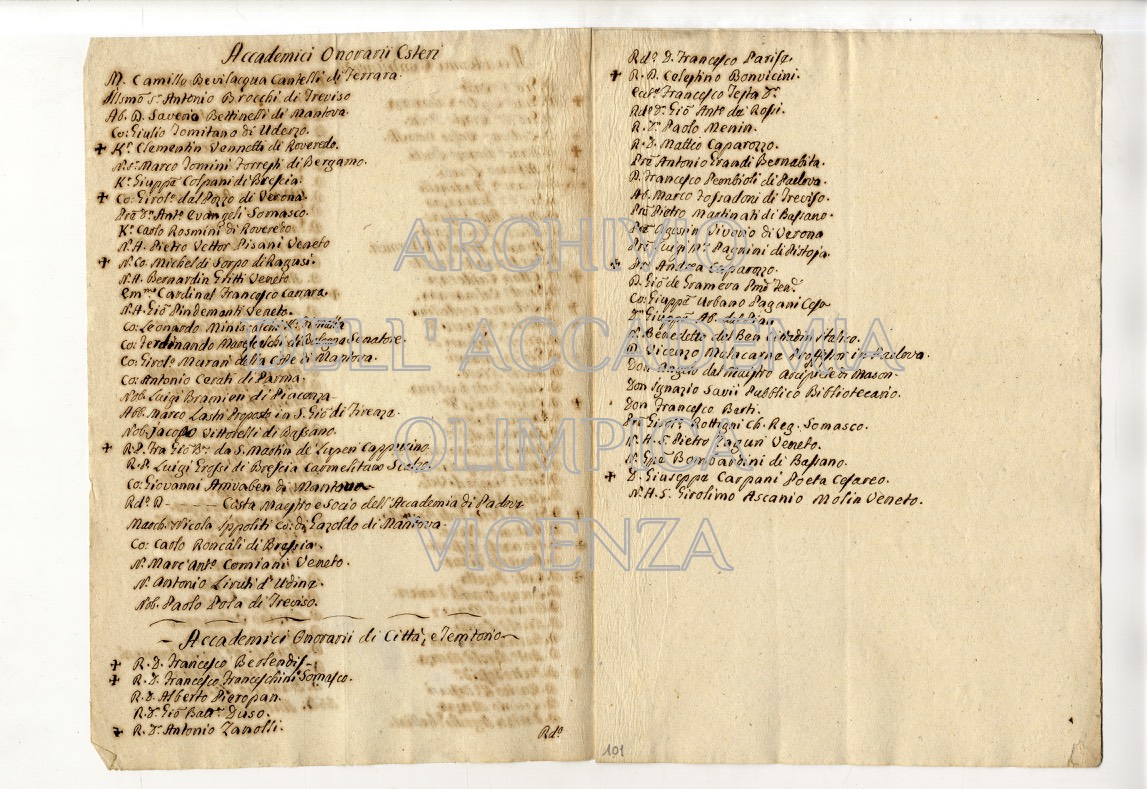 Accademici Onorarii Esteri
M. Camillo Bevilacqua Cantelli di Ferrara.
Illsmo Sr. Antonio Brocchi di Treviso
Ab. D. Saverio Bettinelli di Mantova.
Co: Giulio Tomitano di Uderzo.
✝ Kr. Clementin Vennetti di Roveredo.
Nr. Sr. Marco Tomini Foresti di Bergamo.
Kr. Giuppe Colpani di Brescia.
✝ Co: Girolo. dal Pozzo di Verona.
Pre Dn. Anto. Evangeli Somasco.
Kr. Carlo Rosmini di Roveredo
N. H. Pietro Vettor Pisani Veneto
✝ N. Co. Michel di Sorgo di Ragusi.
N. H. Bernardin Gritti Veneto
Em.mo Cardinal Francesco Carrara.
N. H. Gio Pindemonti Veneto.
Co: Leonardo
Co: Ferdinando Marescalchi di Bologna Senatore.
Co: Girolo. Murari della Corte di Mantova.
Co: Antonio Cerati di Parma.
Nob. Luigi Bramieri di Piacenza.
Abb. Marco Lastri Proposto in S. Gio di Firenze.
Nob. Jacopo Vittorelli di Bassano.
✝ R. P. Fra Gio Bta. da S. Martin de Luperi Cappucino.
R. P. Luigi Grossi di Brescia Carmelitano Scalzo.
Co: Giovanni Arrivaben di Mantova.
Rdo. D. - - - - Costa Maestro e Socio dell'Accademia di Padova
March: Nicola Ippoliti Co: di Gazoldo di Mantova.
Co: Carlo Roncali di Brescia.
N. Marc' Anto. Corniani Veneto.
N. Antonio Liruti d'Udine.
Nob. Paolo Pola di Treviso.
- Accademici Onorarii di Città, e Territorio
✝ R. D. Francesco Berlendis.
✝ R. D. Francesco Franceschini Somasco.
R. D. Alberto Pieropan.
R. D. Gio Battа. Duso.
✝ R. Dn. Antonio Zanolli.
Rdo.
Rdo. D. Francesco Parise.
✝ R. D. Celestino Bonvicini.
Eccte. Francesco Testa Dr.
Rdo. Dn. Gio Anto. de Rossi.
R. Dn. Paolo Menin.
R. D. Matteo Caparozzo.
Pre Antonio Grandi Bernabita.
D. Francesco Pembioli di Padova.
Ab. Marco Fossadoni di Treviso.
Pre Pietro Martinati di Bassano.
Pre Agostin Vivorio di Verona
Pre Luigi Pagnini di Pistoja.
✝ Pre Andrea Caparozzo.
D. Gio de Grameva
Co: Giuppe Urbano Pagani Cesa
Giuppe Ab. dal Pian
N. Benedetto del Ben Cittadin Italico.
D. Vicenzo Malacarne Professor in Padova.
Don Angelo dal Maistro Arciprete di Mason.
Don Ignazio Savii Pubblico Bibliotecario.
Don Francesco Berti.
Pre Girolo. Rottigni Ch. Reg. Somasco.
N. H. S. Pietro Zaguri Veneto.
N. Gpe Bombardini di Bassano.
✝ D. Giuseppe Carpani Poeta Cesareo.
N. H. S. Girolimo Ascanio Molin Veneto.
101
ARCHIVIO
DELL'ACCADEMIA
OLIMPICA
VICENZA